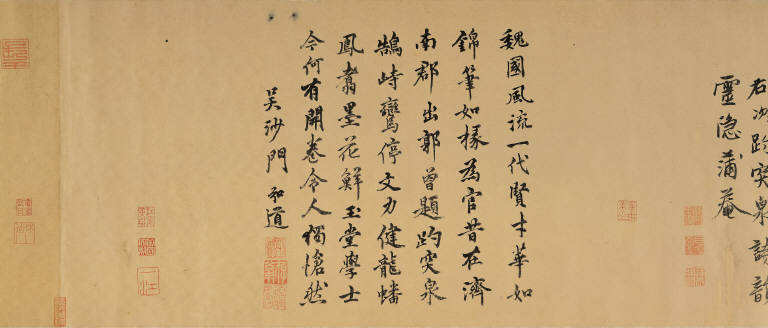 右次趵突泉詩韻
靈隐蒲菴
魏國風流一代賢才華如
錦筆如椽為官昔在濟
南郡出郭曾題趵突泉
鵠峙鸞停文力健龍蟠
鳳翥墨花鮮玉堂學士
今何有開卷令人獨愴然
吳沙門 道